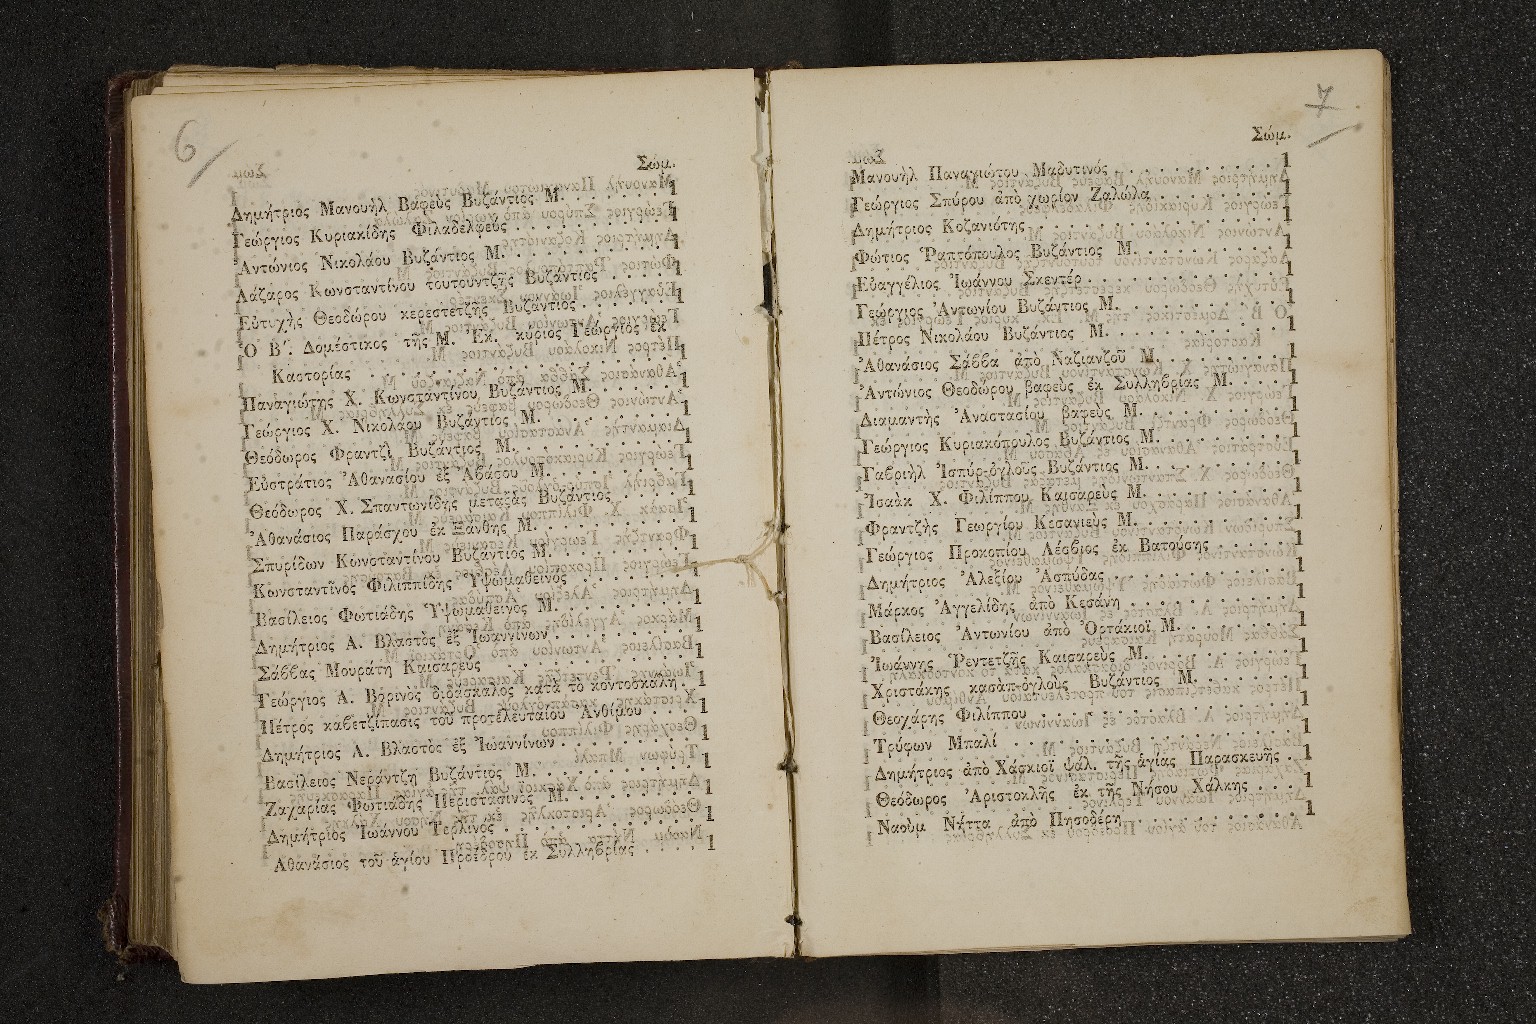 6
Σώμ.
Δημήτριος Μανουὴλ Βαφεὺς Βυζάντιος Μ. . . . . . . . 1
Γεώργιος Κυριακίδης Φιλαδελφεὺς . . . . . . . . . . 1
Ἀντώνιος Νικολάου Βυζάντιος Μ. . . . . . . . . . . 1
Λάζαρος Κωνσταντίνου τουτουντζῆς Βυζάντιος . . . . . 1
Εὐτυχὴς Θεοδώρου κερεστετζῆς Βυζάντιος . . . . . . 1
Ὁ Β΄. Δομέστικος τῆς Μ. Ἐκ. κύριος Γεώργιος ἐκ
Καστορίας . . . . . . . . . . . . . . . . . 1
Παναγιώτης Χ. Κωνσταντίνου Βυζάντιος Μ. . . . . . . 1
Γεώργιος Χ. Νικολάου Βυζάντιος Μ. . . . . . . . . 1
Θεόδωρος Φραντζῆ Βυζάντιος Μ. . . . . . . . . . . 1
Εὐστράτιος Ἀθανασίου ἐξ Ἀβάσου Μ. . . . . . . . . 1
Θεόδωρος Χ. Σπαντωνίδης μεταξᾶς Βυζάντιος . . . . . 1
Ἀθανάσιος Παράσχου ἐκ Ξάνθης Μ. . . . . . . . . . 1
Σπυρίδων Κωνσταντίνου Βυζάντιος Μ. . . . . . . . . 1
Κωνσταντῖνος Φιλιππίδης Ὑψωμαθεινὸς . . . . . . . 1
Βασίλειος Φωτιάδης Ὑψωμαθεινὸς Μ. . . . . . . . . 1
Δημήτριος Α. Βλαστὸς ἐξ Ἰωαννίνων . . . . . . . . 1
Σάββας Μουράτη Καισαρεὺς . . . . . . . . . . . 1
Γεώργιος Α. Βορινὸς διδάσκαλος κατὰ τὸ κοντοσκάλη . 1
Πέτρος καβετζίπασις τοῦ προτελευταίου Ἀνθίμου . . . 1
Δημήτριος Α. Βλαστὸς ἐξ Ἰωαννίνων . . . . . . . . 1
Βασίλειος Νεράντζη Βυζάντιος Μ. . . . . . . . . . 1
Ζαχαρίας Φωτιάδης Περιστασινὸς Μ. . . . . . . . . 1
Δημήτριος Ἰωάννου Τερλινὸς . . . . . . . . . . . 1
Ἀθανάσιος τοῦ ἁγίου Προέδρου ἐκ Συλληβρίας . . . . 1
7
Σώμ.
Μανουὴλ Παναγιώτου Μαδυτινός . . . . . . . . . . 1
Γεώργιος Σπύρου ἀπὸ χωρίον Ζαλώλα . . . . . . . . 1
Δημήτριος Κοζανιότης . . . . . . . . . . . . . . 1
Φώτιος Ῥαπτόπουλος Βυζάντιος Μ. . . . . . . . . . 1
Εὐαγγέλιος Ἰωάννου Σκεντέρ . . . . . . . . . . . 1
Γεώργιος Ἀντωνίου Βυζάντιος Μ. . . . . . . . . . 1
Πέτρος Νικολάου Βυζάντιος Μ. . . . . . . . . . . 1
Ἀθανάσιος Σάββα ἀπὸ Ναζιανζοῦ Μ. . . . . . . . . 1
Ἀντώνιος Θεοδώρου βαφεὺς ἐκ Συλληβρίας Μ. . . . . 1
Διαμαντὴς Ἀναστασίου βαφεὺς Μ. . . . . . . . . . 1
Γεώργιος Κυριακόπουλος Βυζάντιος Μ. . . . . . . . 1
Γαβριὴλ Ἰσπὺρ-ὀγλοῦς Βυζάντιος Μ. . . . . . . . . 1
Ἰσαὰκ Χ. Φιλίππου Καισαρεὺς Μ. . . . . . . . . . 1
Φραντζῆς Γεωργίου Κεσανιεὺς Μ. . . . . . . . . . 1
Γεώργιος Προκοπίου Λέσβιος ἐκ Βατούσης . . . . . . 1
Δημήτριος Ἀλεξίου Ἀσπύδας . . . . . . . . . . . 1
Μάρκος Ἀγγελίδης ἀπὸ Κεσάνη . . . . . . . . . . 1
Βασίλειος Ἀντωνίου ἀπὸ Ὀρτάκιοϊ Μ. . . . . . . . 1
Ἰωάννης Ῥεντετζῆς Καισαρεὺς Μ. . . . . . . . . . 1
Χριστάκης κασὰπ-ὀγλοῦς Βυζάντιος Μ. . . . . . . . 1
Θεοχάρης Φιλίππου . . . . . . . . . . . . . . 1
Τρύφων Μπαλί . . . . . . . . . . . . . . . . 1
Δημήτριος ἀπὸ Χάσκιοϊ ψάλ. τῆς ἁγίας Παρασκευῆς . 1
Θεόδωρος Ἀριστοκλῆς ἐκ τῆς Νήσου Χάλκης . . . . 1
Ναοὺμ Νήττα ἀπὸ Πησοδέρη . . . . . . . . . . 1